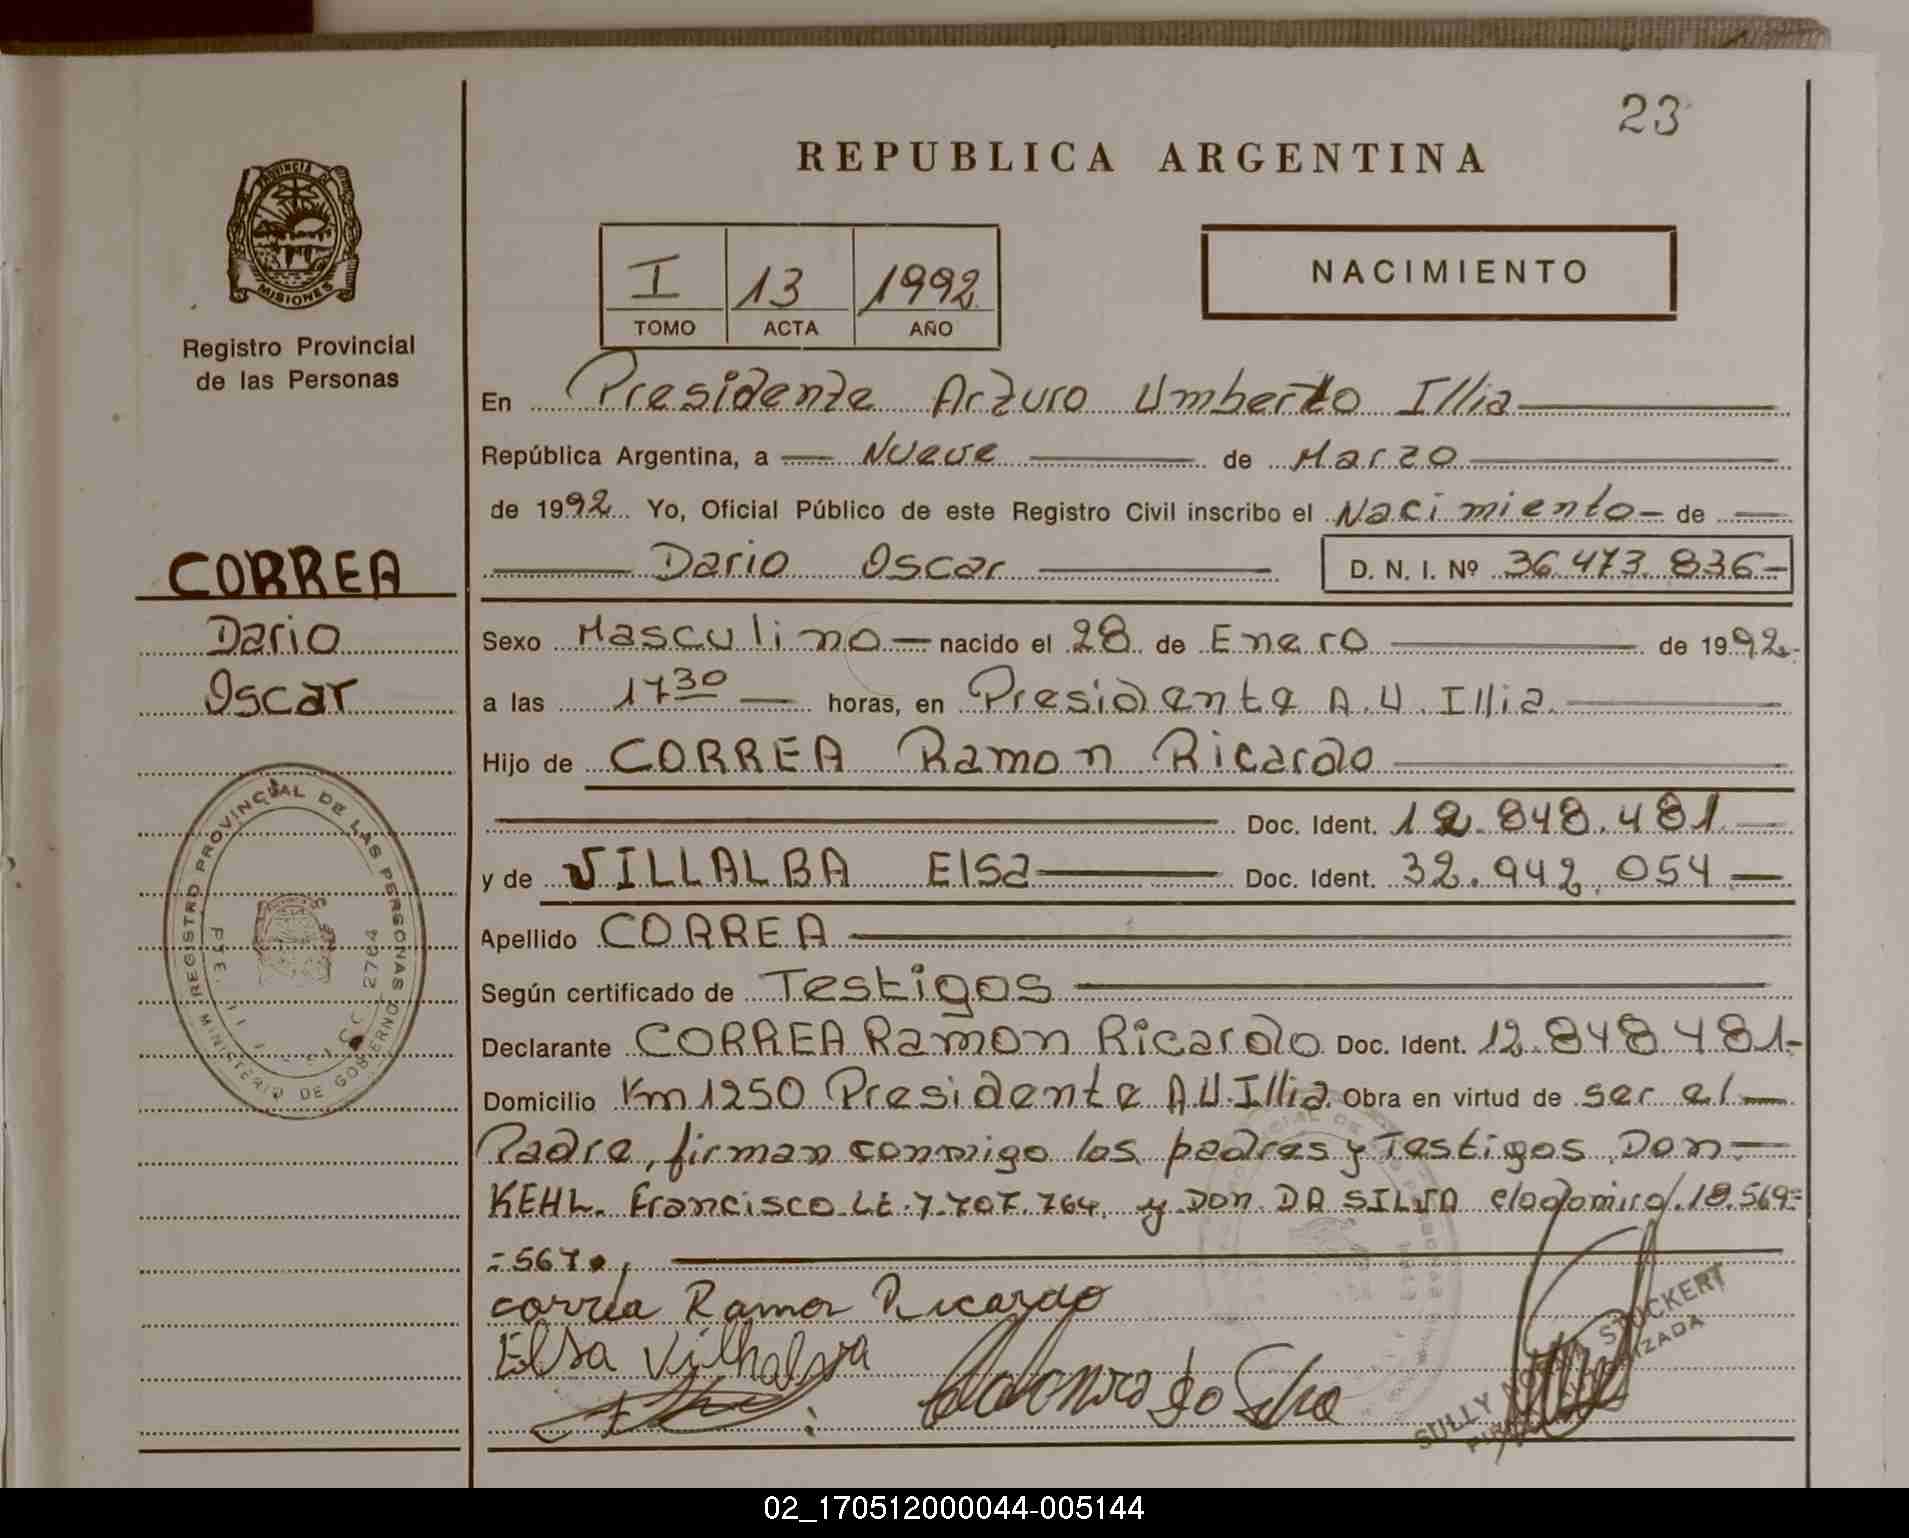 23
REPUBLICA ARGENTINA
PROVINCIA DE
MISIONES
Registro Provincial
de las Personas
I 13 1992
TOMO ACTA AÑO
NACIMIENTO
En Presidente Arturo Umberto Illia
República Argentina, a Nueve de Marzo
de 1992 Yo, Oficial Público de este Registro Civil inscribo el Nacimiento de
Dario Oscar D. N. I. Nº 36.473.836
CORREA
Dario
Oscar
Sexo Masculino nacido el 28 de Enero de 1992
a las 17 30 horas, en Presidente A.U. Illia
Hijo de CORREA Ramon Ricardo
Doc. Ident. 12.848.481
y de VILLALBA Elsa Doc. Ident. 32.942.054
Apellido CORREA
Según certificado de Testigos
Declarante CORREA Ramon Ricardo Doc. Ident. 12.848.481-
Domicilio Km 1250 Presidente A.U. Illia Obra en virtud de ser el
Padre, firman conmigo los padres y Testigos Don
KEHL Francisco LE. 7.707.764 y Don DA SILVA Clodomiro 18.569=
=567.
REGISTRO PROVINCIAL DE LAS PERSONAS
MINISTERIO DE GOBERNO
PTE.
2764
correa Ramon Ricardo
Elsa Vilhalva
Clodomiro do Silva
SULLY STOCKERT
02_170512000044-005144